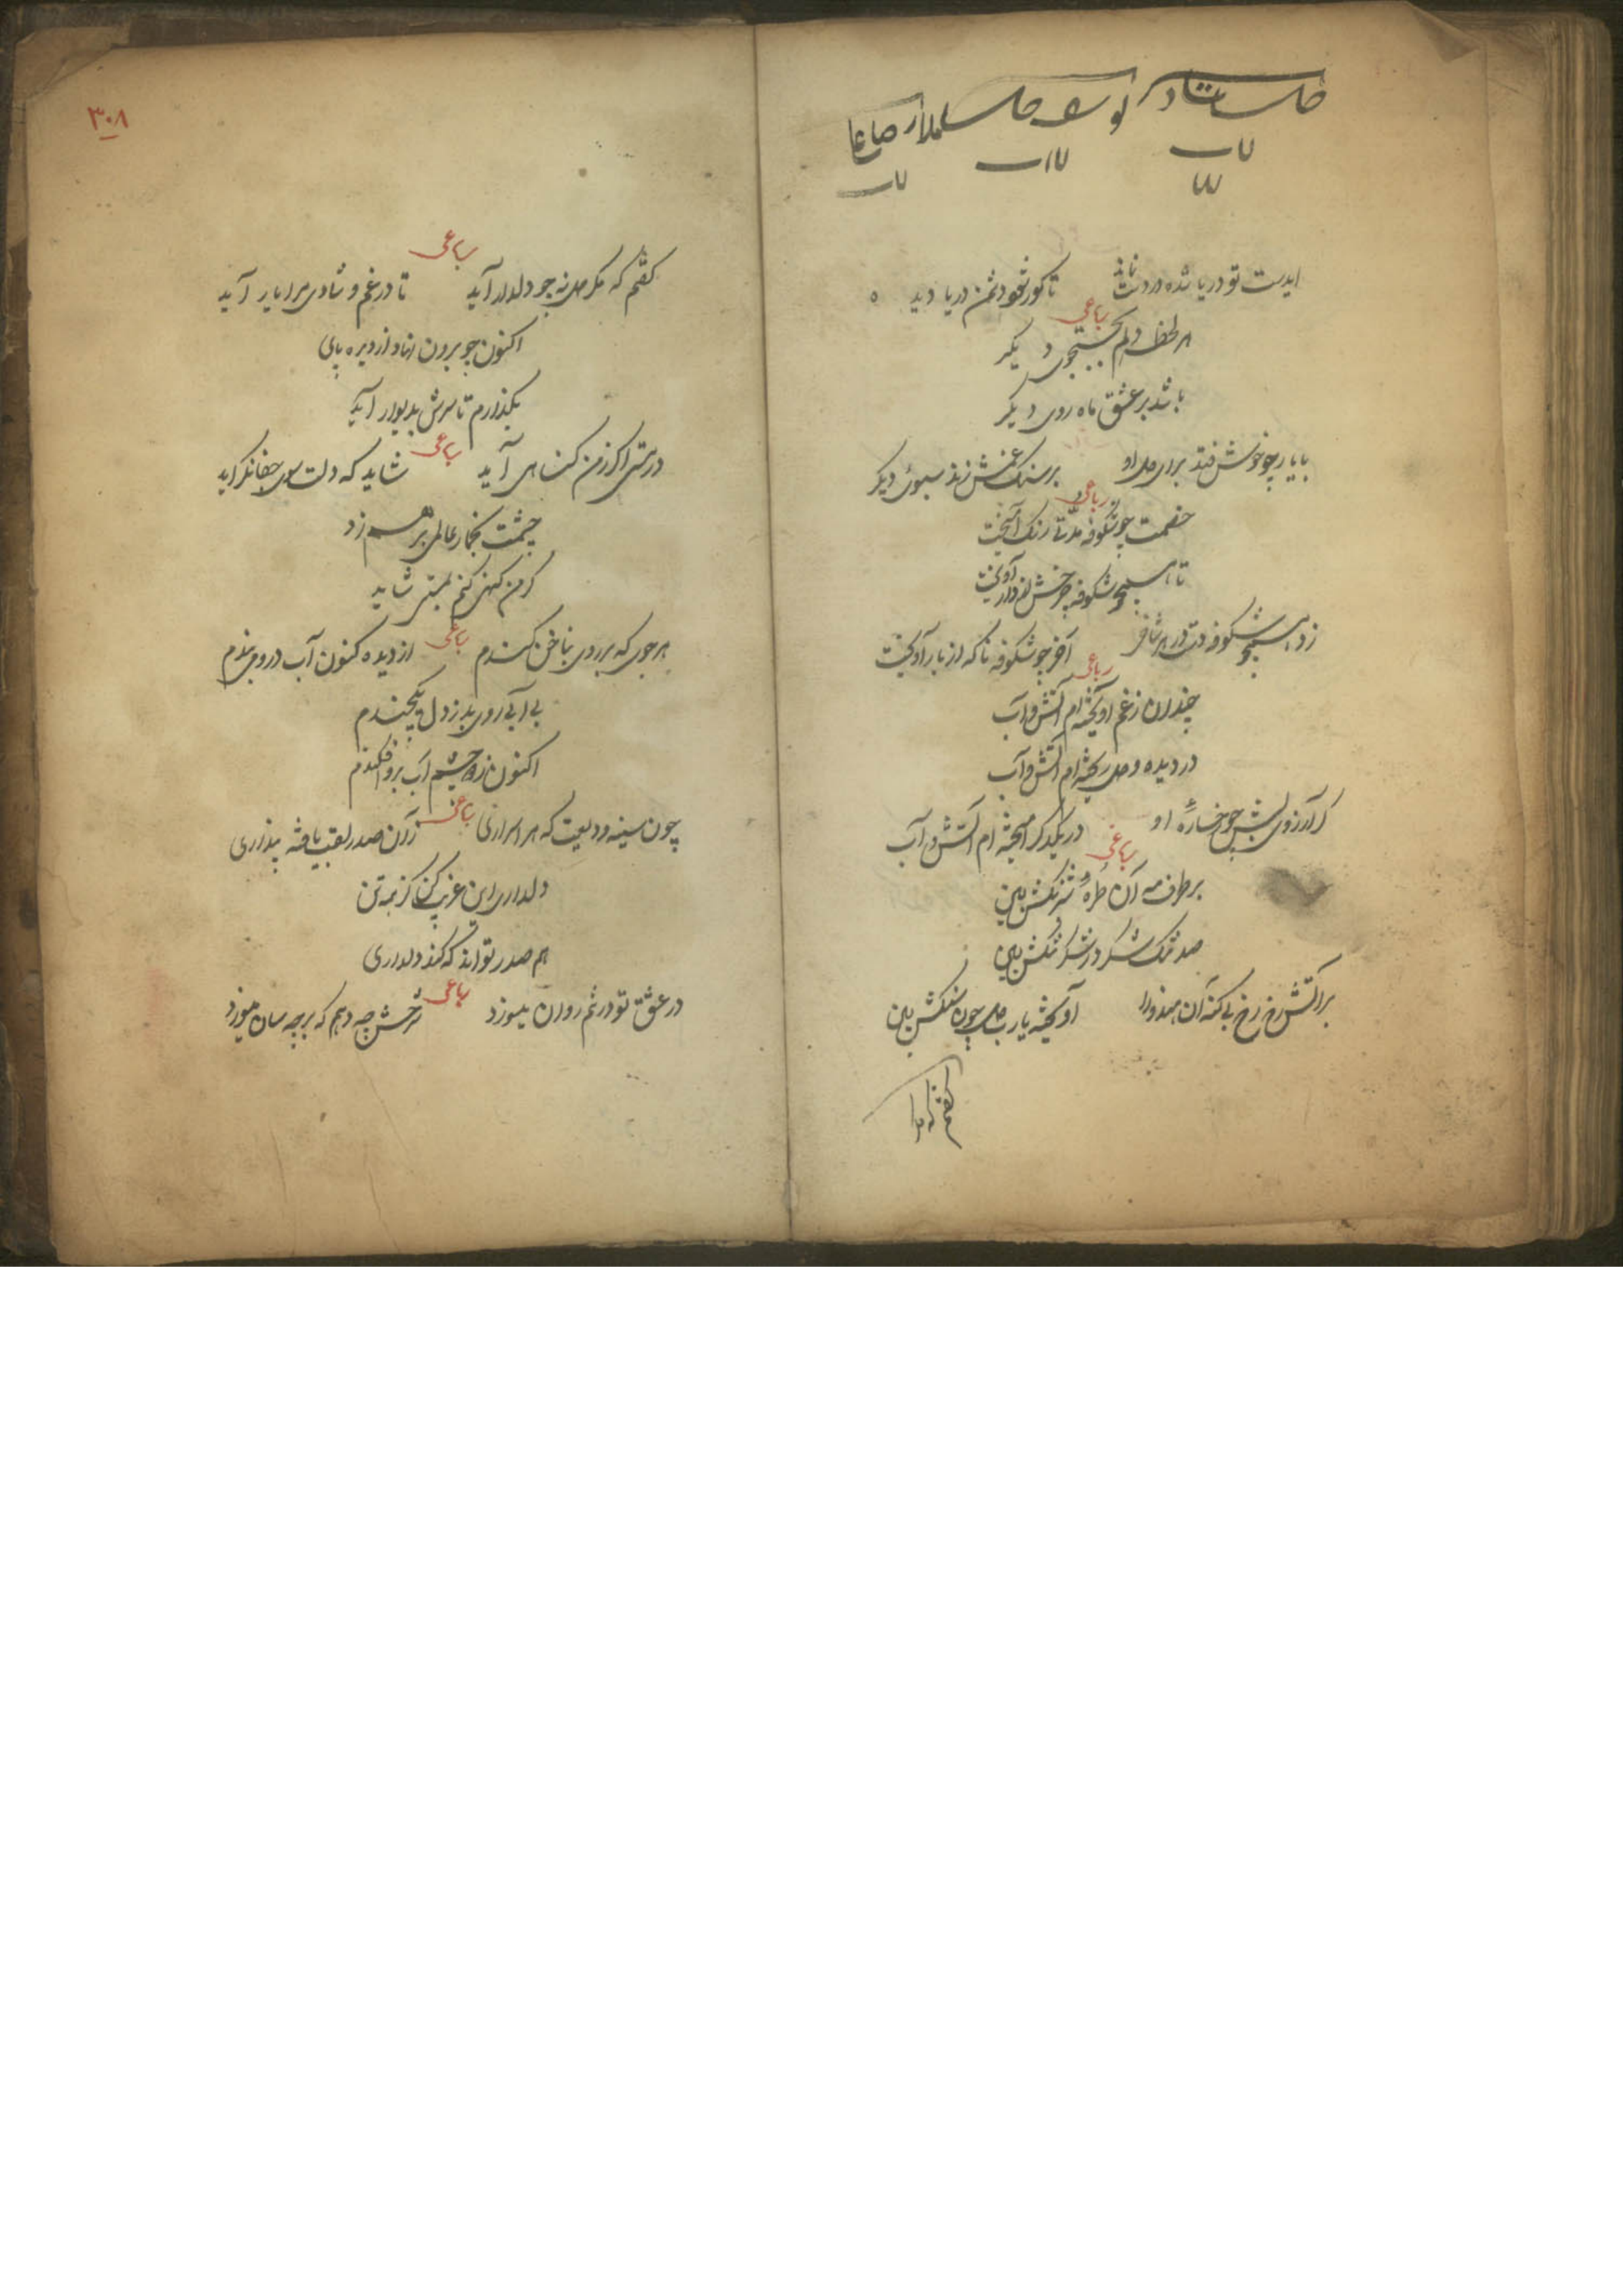 ایدست تو دریا شده در دست
تا کور شود دشمن دریا دید ه
رباعی
هر لحظه دلم بجستجوی دیگر
باشد بر عشق ماه روی دیگر
با یار چو خوش فتد برای دل او
بر سنگ غمش زند سبوی دیگر
رباعی
خصمت چو شکوفه مدتی رنگ آمیخت
تا همچو شکوفه
زد همچو شکوفه دست در هر شاخی
آخر چو شکوفه ناگه از بار آویخت
رباعی
چندان ز غم آویخته ام آتش و آب
در دیده و دل ریخته ام آتش و آب
کز آرزوی لبش چو رخساره او
در یکدگر آمیخته ام آتش و آب
رباعی
بر طرف مه آن طره شبرنگش بین
صد تنگ شکر در شکر تنگش بین
بر آتش رخ بی گنه آن هندو را
آویخته یا رب دل چون سنگش بین
گفتم که مرا
۳۰۸
رباعی
گفتم که مگر دل نه چو دلدار آید
تا در غم و شادی مرا یار آید
اکنون چو برون نهاد از دیره پای
بگذارم تا سرش بدیوار آید
رباعی
در مستی اگر ز من گناهی آید
شاید که دلت سوی جفا نگراید
چشمت بخمار عالمی بر هم زد
گر من گنهی کنم بمستی شاید
رباعی
هر جوی که بر روی بناخن کندم
از دیده کنون آب درو می بندم
بی آبی روی بد ز دل
اکنون ز ره چشم آب برو افکندم
رباعی
چون سینه ودیعت که هر اسراری
زان صدر لقب یافته پنداری
دلداری این غریب کن کز همه تن
هم صدر تواند که کند دلداری
رباعی
در عشق تو در تنم روان میسوزد
شرحش چه دهم که بر چه سان میسوزد